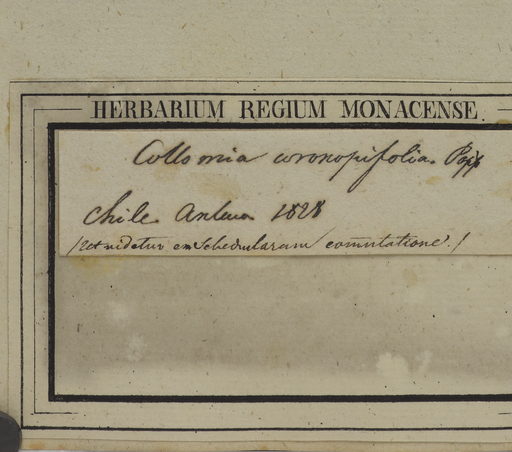 HERBARIUM REGIUM MONACENSE.
Collomia coronopifolia. Popp
Chile Antuco 1828
(ut videtur ex schedularum commutatione.)